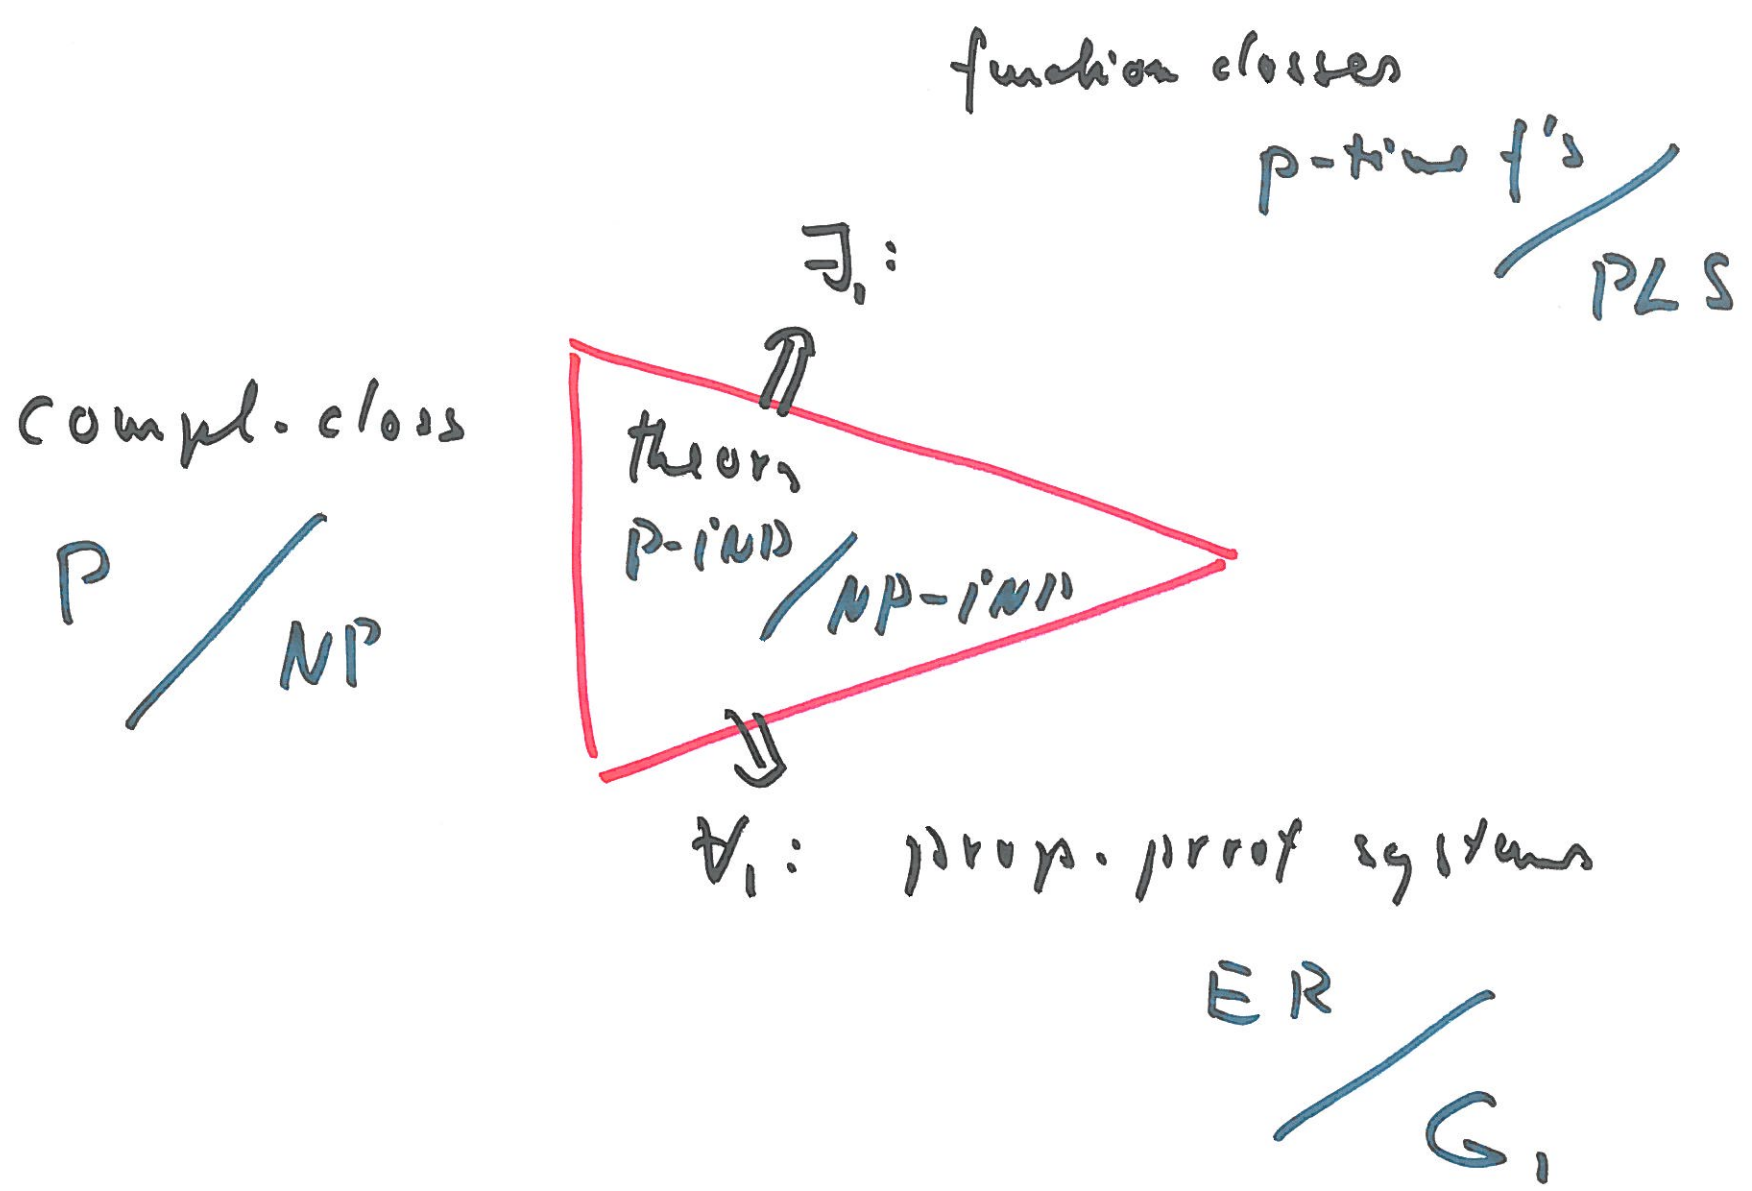 function classes
p-time f's / PLS
∃₁:
compl. class
P / NP
theory
P-IND / NP-IND
∀₁: prop. proof systems
ER / G₁